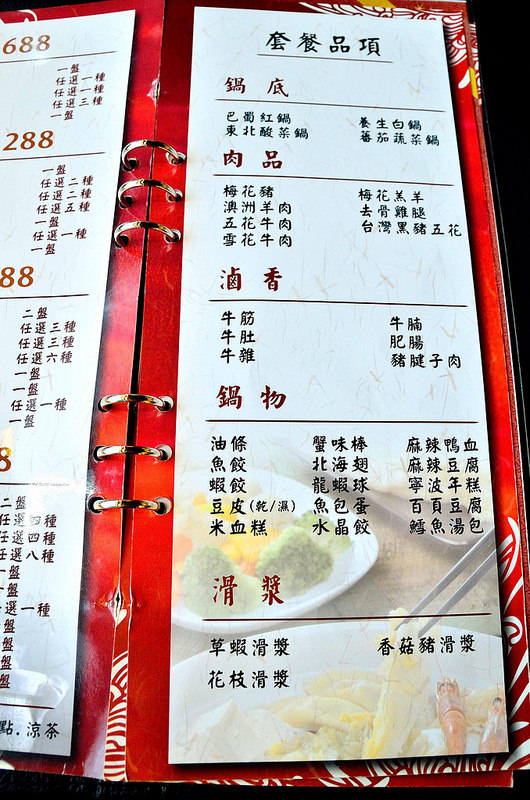 688
一盤
任選一種
任選一種
任選三種
一盤
288
一盤
任選二種
任選二種
任選五種
一盤
任選一種
一盤
88
二盤
任選三種
任選三種
任選六種
一盤
一盤
任選一種
一盤
8
二盤
任選四種
任選四種
任選八種
一盤
一盤
選一種
盤
盤
盤
盤
點.涼茶
套餐品項
鍋底
巴蜀紅鍋 養生白鍋
東北酸菜鍋 蕃茄蔬菜鍋
肉品
梅花豬 梅花羔羊
澳洲羊肉 去骨雞腿
五花牛肉 台灣黑豬五花
雪花牛肉
滷香
牛筋 牛腩
牛肚 肥腸
牛雜 豬腱子肉
鍋物
油條 蟹味棒 麻辣鴨血
魚餃 北海翅 麻辣豆腐
蝦餃 龍蝦球 寧波年糕
豆皮(乾/濕) 魚包蛋 百頁豆腐
米血糕 水晶餃 鱈魚湯包
滑漿
草蝦滑漿 香菇豬滑漿
花枝滑漿